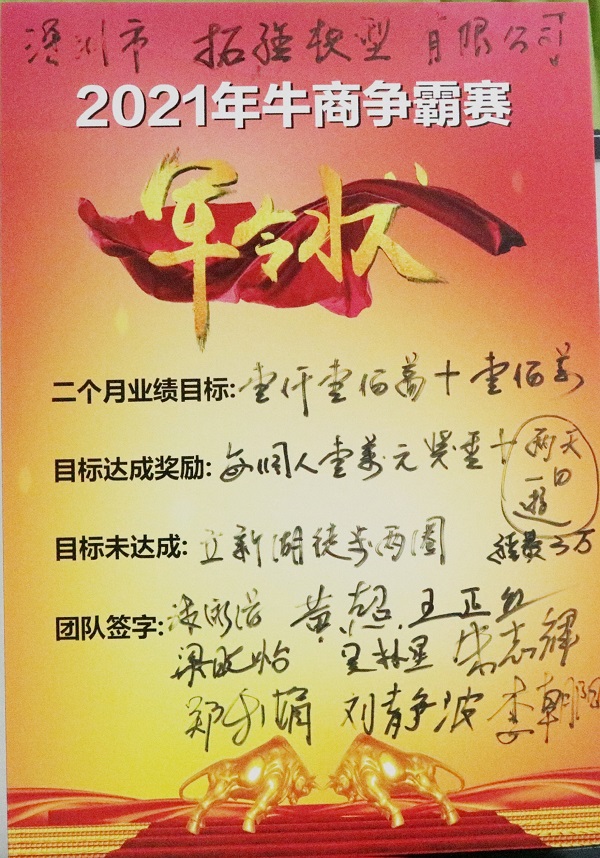 深圳市 拓强模型 有限公司
2021年牛商争霸赛
军令状
二个月业绩目标: 壹仟壹佰萬十壹佰萬
目标达成奖励: 每個人壹萬元奖金十 两天一日游
目标未达成: 立新湖徒步两圈 经费3万
团队签字: 黄超 王正红
梁晓怡 吴林星 志輝
郑利娟 刘静波 李朝阳